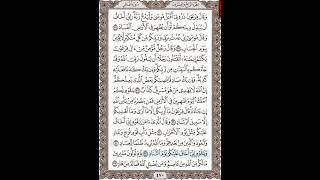 وَقَالَ فِرْعَوْنُ ذَرُونِي أَقْتُلْ مُوسَىٰ وَلْيَدْعُ رَبَّهُ إِنِّي أَخَافُ
أَن يُبَدِّلَ دِينَكُمْ أَوْ أَن يُظْهِرَ فِي الْأَرْضِ الْفَسَادَ ٢٦
وَقَالَ مُوسَىٰ إِنِّي عُذْتُ بِرَبِّي وَرَبِّكُم مِّن كُلِّ مُتَكَبِّرٍ لَّا يُؤْمِنُ
بِيَوْمِ الْحِسَابِ ٢٧ وَقَالَ رَجُلٌ مُّؤْمِنٌ مِّنْ آلِ فِرْعَوْنَ
يَكْتُمُ إِيمَانَهُ أَتَقْتُلُونَ رَجُلًا أَن يَقُولَ رَبِّيَ اللَّهُ وَقَدْ
جَاءَكُم بِالْبَيِّنَاتِ مِن رَّبِّكُمْ وَإِن يَكُ كَاذِبًا فَعَلَيْهِ
كَذِبُهُ وَإِن يَكُ صَادِقًا يُصِبْكُم بَعْضُ الَّذِي يَعِدُكُمْ
إِنَّ اللَّهَ لَا يَهْدِي مَنْ هُوَ مُسْرِفٌ كَذَّابٌ ٢٨ يَا قَوْمِ
لَكُمُ الْمُلْكُ الْيَوْمَ ظَاهِرِينَ فِي الْأَرْضِ فَمَن يَنصُرُنَا مِن بَأْسِ
اللَّهِ إِن جَاءَنَا قَالَ فِرْعَوْنُ مَا أُرِيكُمْ إِلَّا مَا أَرَىٰ وَمَا أَهْدِيكُمْ
إِلَّا سَبِيلَ الرَّشَادِ ٢٩ وَقَالَ الَّذِي آمَنَ يَا قَوْمِ إِنِّي أَخَافُ
عَلَيْكُم مِّثْلَ يَوْمِ الْأَحْزَابِ ٣٠ مِثْلَ دَأْبِ قَوْمِ نُوحٍ وَعَادٍ
وَثَمُودَ وَالَّذِينَ مِن بَعْدِهِمْ وَمَا اللَّهُ يُرِيدُ ظُلْمًا لِّلْعِبَادِ ٣١
وَيَا قَوْمِ إِنِّي أَخَافُ عَلَيْكُمْ يَوْمَ التَّنَادِ ٣٢ يَوْمَ تُوَلُّونَ مُدْبِرِينَ
مَا لَكُم مِّنَ اللَّهِ مِنْ عَاصِمٍ وَمَن يُضْلِلِ اللَّهُ فَمَا لَهُ مِنْ هَادٍ ٣٣
٤٧٠